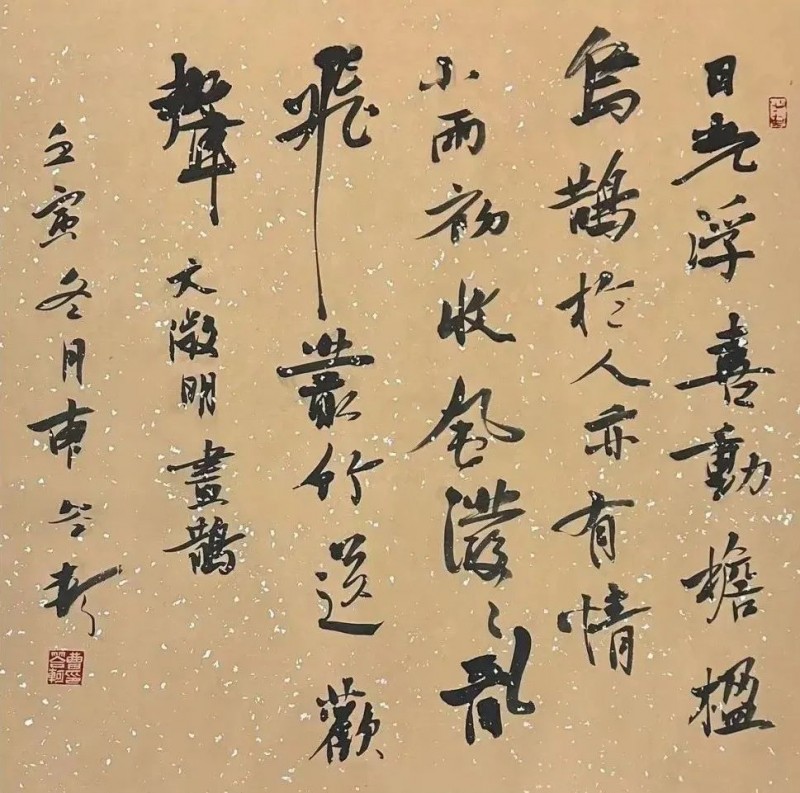 日光浮喜動檐楹
烏鵲於人亦有情
小雨初收風潑々亂
飛叢竹送歡
聲 文徵明 畫鵲
壬寅冬月